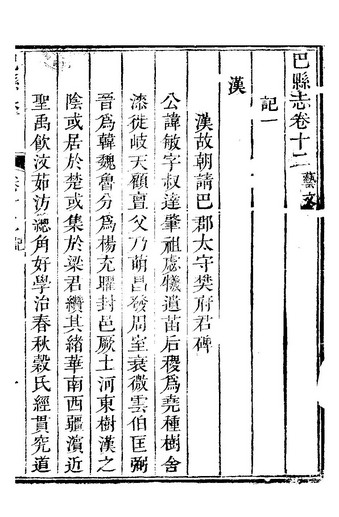 巴縣志卷十二 藝文
記一
漢
漢故朝請巴郡太守樊府君碑
公諱敏字叔達肇祖虙犧遺苗后稷爲堯種樹舍
漆徙岐天顧亶父乃萌昌發周室衰微雲伯匡弼
晉爲韓魏魯分爲楊充曜封邑厥土河東樹漢之
陰或居於楚或集於梁君纘其緒華南西疆濱近
聖禹飲汶茹汸總角好學治春秋穀氏經貫究道